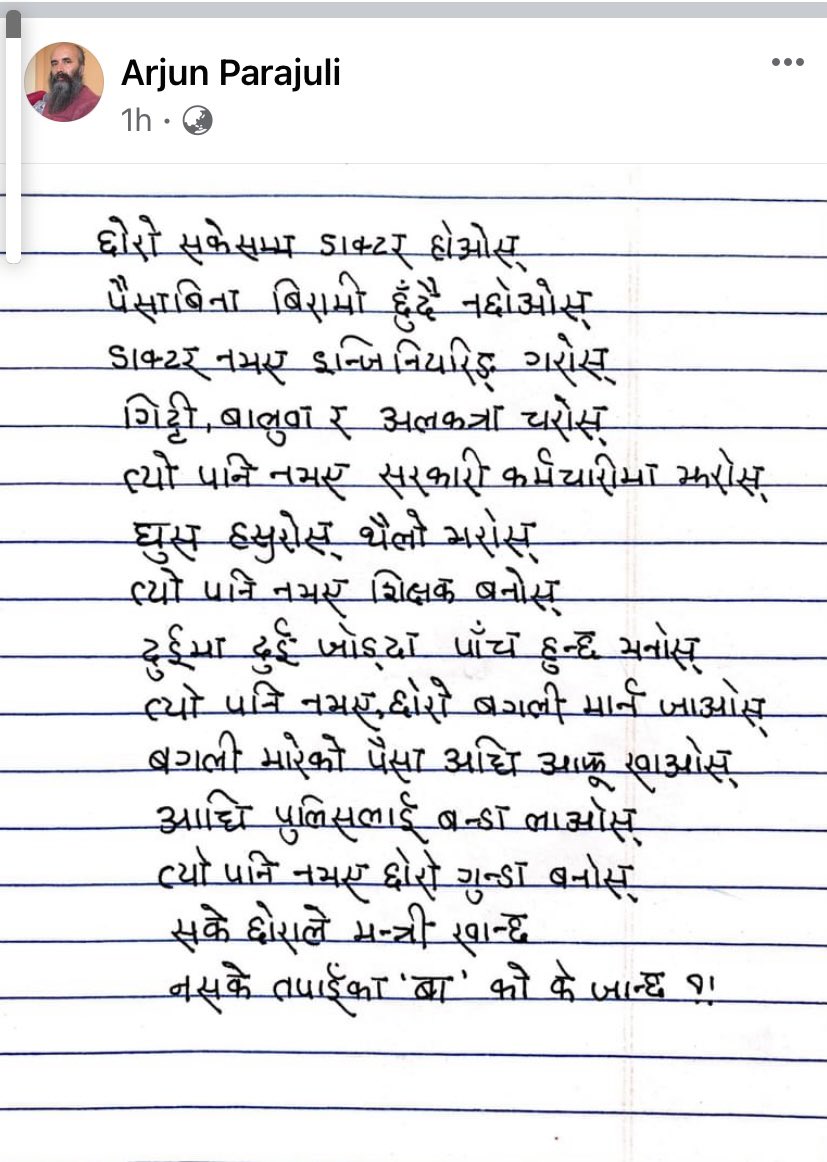 Arjun Parajuli
1h
छोरो सकेसम्म डाक्टर होओस्
पैसाबिना बिरामी छुँदै नछोओस्
डाक्टर नभए इन्जिनियरिङ् गरोस्
गिट्टी, बालुवा र अलकत्रा चरोस्
त्यो पनि नभए सरकारी कर्मचारीमा झरोस्
घुस हसुरोस् थैलो भरोस्
त्यो पनि नभए शिक्षक बनोस्
दुईमा दुई जोड्दा पाँच हुन्छ भनोस्
त्यो पनि नभए, छोरो बगली मार्न जाओस्
बगली मारेको पैसा अघि आफू खाओस्
आधि पुलिसलाई बन्डा लाओस्
त्यो पनि नभए छोरो गुन्डा बनोस्
सके छोराले मन्त्री खान्छ
नसके तपाईँका 'बा' को के जान्छ ?!